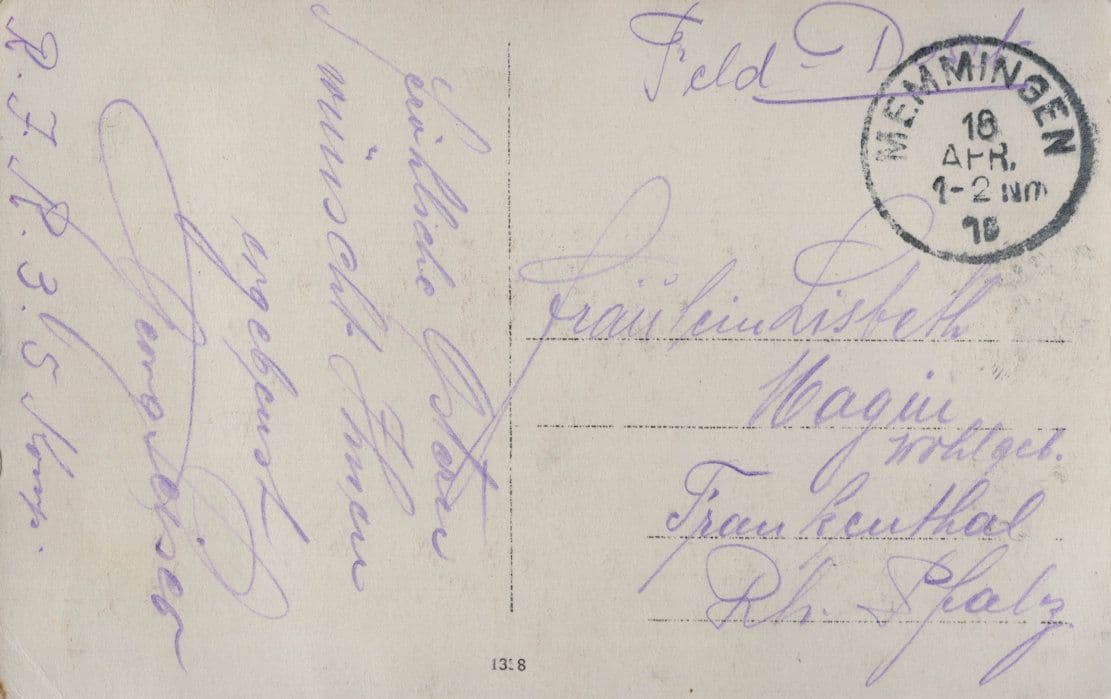 Feld-Post
MEMMINGEN
18
APR.
1-2 Nm
Fräulein Lisbeth
Magin
wohlgeb.
Frankenthal
Rh. Pfalz
Fröhliche Ostern
wünscht Ihnen
ergebenst
R. I. R. 3. 5 Komp.
1318